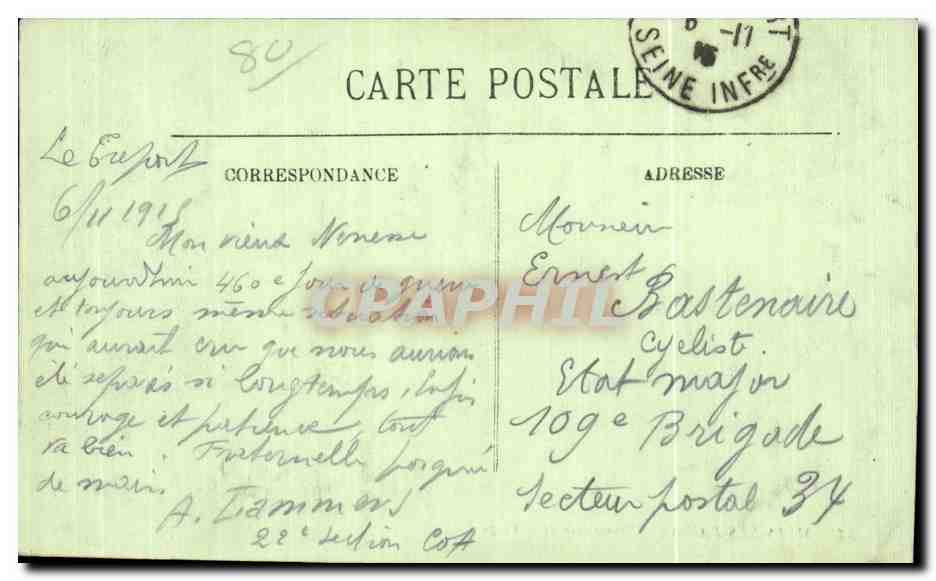 80
6 -11
15
SEINE INFRE
CARTE POSTALE
CORRESPONDANCE
ADRESSE
Le Treport
6/11 1915
Mon vieux Nenesse
aujourd'hui 460e jour de guerre
et toujours même situation
qui aurait cru que nous aurions
été séparés si longtemps, enfin
courage et patience, tout
va bien. Fraternelle poignée
de main
A. Lammens
22e section COA
Monsieur
Ernest Bastenaire
Cycliste
Etat major
109e Brigade
Secteur postal 34
CPAPHIL